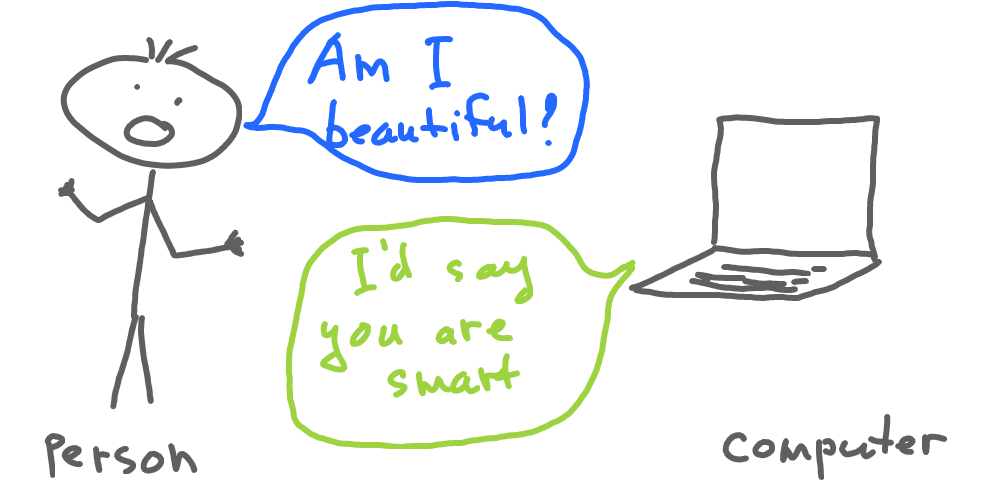 Am I
beautiful?
I'd say
you are
smart
Person
Computer